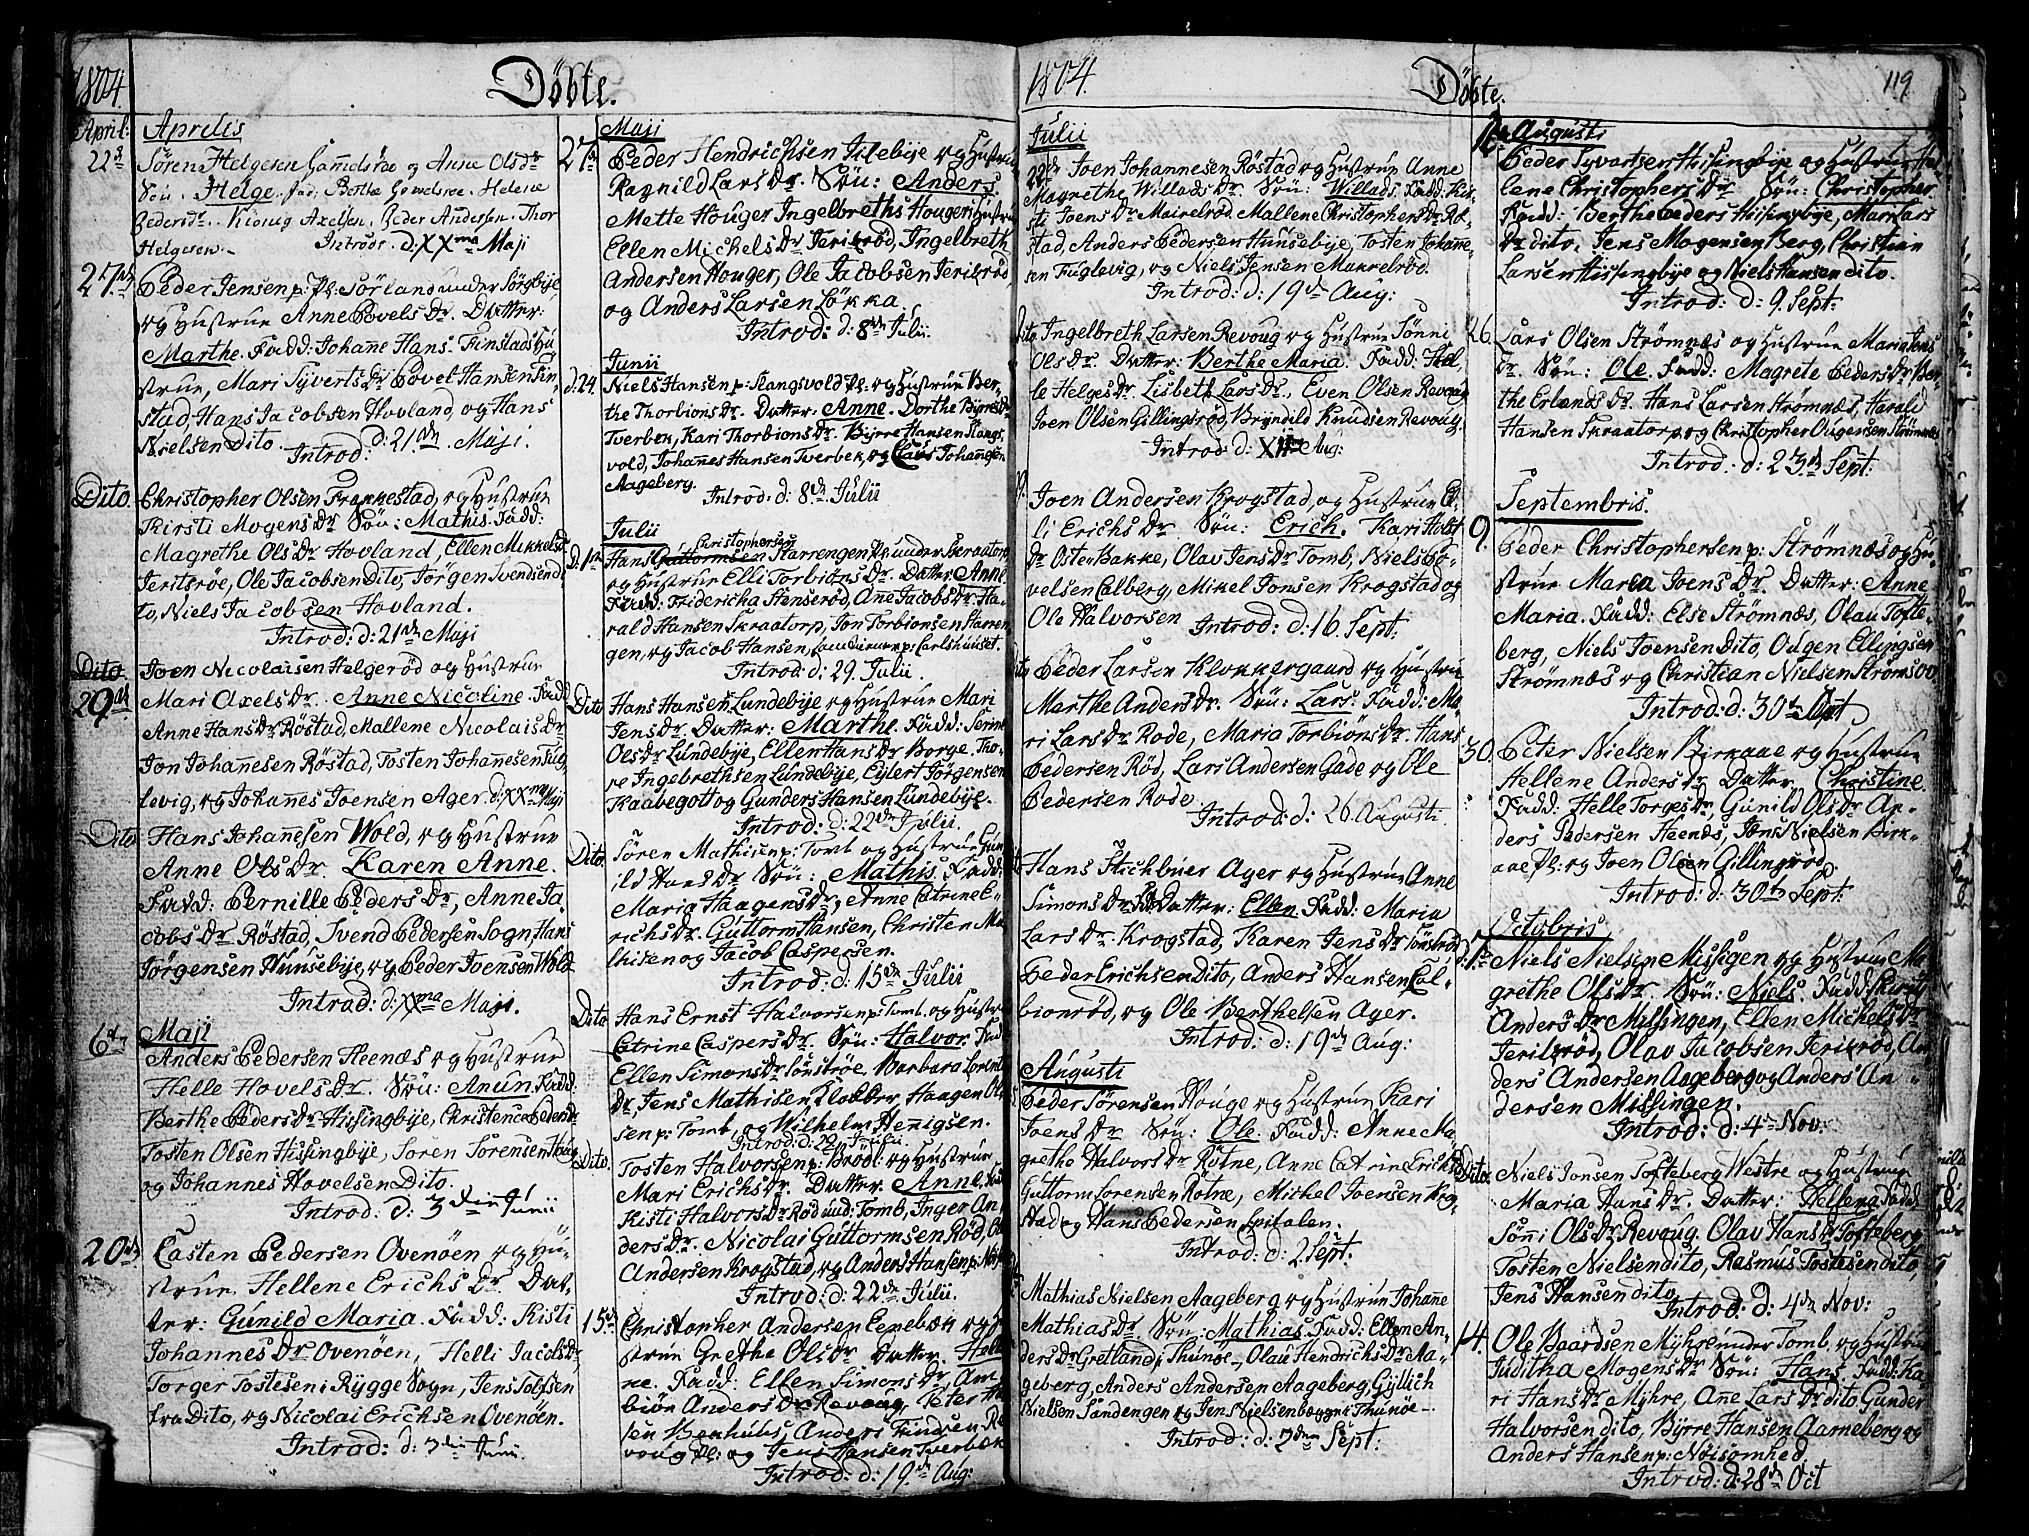 1804.
Döbte.
April:
Aprelis
22d
Sörene Helgesen Gamelsröe og Anne Olsdr
Sön: Helge. fad. Berthe Gamelsröe. Helene
Pedersdr. Kionig Axelsen. Peder Andersen. Thor
Helgesen. Introd: d. XXma Maji
27de
Peder Jensen p: Pl: Sörland under Sörgbÿe,
og Hustrue Anne Povels Dr. Datter:
Marthe. Fadd: Johanne Hans Finstads Hu
strue, Mari Syverts Dr Povel Hansen Fin
stad, Hans Jacobsen Hovland, og Hans
Nielsen Dito. Introd: d: 21de Maji.
Dito.
Christopher Olsen Frankestad, og Hustrue
Kirsti Mogens Dr Sön: Mathis. Fadd:
Magrethe Ols Dr Hovland, Ellen Mikkels Dr
Jeriksröe, Ole Jacobsen Dito, Jörgen Svendsen di
to, Niels Jacobsen Hovland.
Introd: d: 21de Maji
Dito
29de
Joen Nicolaisen Helgeröd og Hustrue
Mari Axels Dr. Anne Nicoline. Fadd
Anne Hans Dr Röstad, Mallene Nicolais Dr
Jon Johannesen Röstad, Tosten Johannesen Fug
levig, og Johannes Joensen Ager. d: XXma Maji
Dito
Hans Johannesen Wold, og Hustrue
Anne Ols Dr. Karen Anne.
Fadd: Pernille Peders Dr, Anne Ja
cobs Dr Röstad, Svend Pedersen Sogn, Hans
Jörgensen Hunsebije, og Peder Joensen Wold
Introd: d: XXma Maji.
6te
Maji
Anders Pedersen Heenæs og Hustrue
Helle Hovels Dr. Sön: Anun. Fadd.
Berthe Peders Dr Hissingbije, Christence Peders Dr
Tosten Olsen Hissingbije, Soren Sörensen Houg
og Johannes Hovelsen Dito.
Introd: d: 3die Junii
20de
Casten Pedersen Ovenöen og Hu-
strue Hellene Erichs Dr. Dat-
ter: Gunild Maria. Fadd: Kisti
Johannes Dr Ovenöen, Helli Jacobs Dr
Torger Tostesen i Rygge Sogn, Jens Tolfsen
fra Dito, og Nicolai Erichsen Ovenöen.
Introd: d: 3die Juni.
Maji
27de
Peder Hendrichsen Jilebije og Hustrue
Ragnild Lars Dr. Sön: Anders.
Mette Houger Ingelbreths Hougers Hustrue
Ellen Michels Dr Jeriksröd, Ingelbreth
Andersen Houger, Ole Jacobsen Jeriksröd
og Anders Larsen Lökka.
Introd: d: 8de Julii.
Junii
d: 24.
Niels Hansen p: Slangsvold Pl: og Hustrue Ber-
the Thorbions Dr. Datter: Anne. Dorthe Byres Dr
Tverbek, Kari Thorbions Dr. Byrre Hansen Slangs
vold, Johannes Hansen Tverbek, og Claus Johannesen
Aageberg. Introd: d: 8de Julii
Julii
Christophersen
D. 1ste
Hans Guttormsen Starrengen Pl: under Skraatorp
og Hustrue Elli Torbions Dr. Datter: Anne
Fadd: Fridericha Stenseröd, Ane Jacobs Dr Ha-
rald Hansen Skraatorp, Jon Torbionsen Starren
gen, og Jacob Hansen, p: Carlshuuset.
Introd: d: 29. Julii.
Dito
Hans Hansen Lundebije og Hustrue Mari
Jens Dr. Datter: Marthe. Fadd: Jerine
Ols Dr Lundebije, Ellen Hans Dr Borge, Tho-
re Ingebrethsen Lundebije, Eylert Jörgensen
Kaabegott og Gunders Hansen Lundebije.
Introd: d: 22de Julii.
Dito
Sören Mathisen p: Tomb og Hustrue Gun
ild Hans Dr Sön: Mathis. Fadd:
Maria Haagens Dr, Anne Catrine E-
richs Dr. Guttorm Hansen, Christen Ma
thisen og Jacob Caspersen.
Introd: d: 15de Julii
Dito
Hans Ernst Halvorsen p: Tomb. og Hustrue
Catrine Caspers Dr. Sön: Halvor. Fadd
Ellen Simons Dr Sönströe. Barbara Lorents
Dr, Jens Mathisen Klokker, Haagen Ol
sen p: Tomb, og Wilhelm Henigsen.
Introd: d: 29 Julii.
Dito.
Tosten Halvorsen p: Brödl: og Hustrue
Mari Erichs Dr. Datter: Anne. Fadd
Kisti Halvors Dr Röd und: Tomb, Inger An
ders Dr. Nicolai Guttormsen Röd, Ole
Andersen Krogstad, og Anders Hansen p:
Introd: d: 22de Julii.
15de
Christopher Andersen Eenebæk og Hu
strue Grethe Ols Dr Datter. Helle
ne. Fadd: Ellen Simons Dr, Am
biör Anders Dr Revoug, Peter
sen Beenhuus, Anders Findsen Re
voug Pl: og Jens Hansen Tverbek
Introd: d: 19de Aug:
1804.
Döbte.
119
Julii
22de
Joen Johannesen Röstad og Hustrue Anne
Magrethe Willads Dr. Sön: Willads Fadd: Kis-
ti Joens Dr Mairelröd, Mallene Christophers Dr Rö
stad, Anders Pedersen Hunsebije, Tosten Johanne
sen Fuglevig, og Niels Jensen Makrelröd.
Introd: d: 19de Aug:
Dito
Ingelbreth Larsen Revoug og Hustrue Sönni
Ols Dr. Datter: Berthe Maria. Fadd: Hel
le Helges Dr. Lisbeth Lars Dr., Even Olsen Revoug
Joen Olsen Gillingsröd, Bryndild Knudsen Revoug.
Introd: d: XIIte Aug:
Joen Andersen Krogstad, og Hustrue El-
li Erichs Dr. Sön: Erich. Kari Holst
Dr Osten Bakke, Olav Jens Dr Tomb, Niels Po-
velsen Calberg, Mikel Jonsen Krogstad og
Ole Halvorsen Introd: d: 16. Sept:
Dito
Peder Larsen Klokkergaard og Hustrue
Marthe Anders Dr. Sön: Lars. Fadd: Ma
ri Lars Dr Rode, Maria Torbiöns Dr. Hans
Pedersen Röd, Lars Andersen Gade og Ole
Pedersen Rode
Introd: d: 26 Augusti.
Hans Stichbuer Ager og Hustrue Anne
Simons Dr. Datter: Ellen. Fadd: Maria
Lars Dr. Krogstad, Karen Jens Dr Sönströd
Peder Erichsen Dito, Anders Hansen Col-
bionröd, og Ole Berthelsen Ager.
Introd: d: 19de Aug:
Augusti
Peder Sörensen Houge og Hustrue Kari
Joens Dr Sön: Ole. Fadd: Anne Ma-
grethe Halvors Dr Rötne, Anne Catrine Erichs
Guttorm Sorensen Rotne, Michel Joensen Krog-
stad og Hans Pedersen Spitalen.
Introd: d: 2 Sept:
Mathias Nielsen Aageberg og Hustrue Johanne
Mathias Dr. Sön: Mathias. Fadd: Ellen An-
ders Dr Gretland p: Thunöe, Olau Hendrichs Dr Aa-
geberg, Anders Andersen Aageberg, Gyllich
Nielsen Sandengen og Jens Nielsen begge Thunöe-
Introd: d: 2den Sept:
12te
Augusti
Peder Syvartsen Hissingbije og Hustrue Hel
lene Christophers Dr Sön: Christopher
Fadd: Berthe Peders Hissingbije, Mari Lars
Dr dito, Jens Mogensen Berg, Christian
Larsen Hissingbije og Niels Hansen dito.
Introd: d: 9. Sept:
26.
Lars Olsen Strömnæs og Hustrue Maria Jens
Dr. Sön: Ole. Fadd: Magrete Peders Dr Ber-
the Erlands Dr. Hans Larsen Strömnæs, Harald
Hansen Skraatorp og Christopher Ougensen Strömnæs
Introd: d: 23de Sept:
Septembris.
9.
Peder Christophersen p: Strömnæs og Hu-
strue Maria Joens Dr. Datter: Anne
Maria. Fadd: Else Strömnæs, Olau Tofte-
berg, Niels Joensen Dito, Ougen Ellingsen
Strömnæs og Christian Nielsen Strömsoo
Introd: d: 30te Sept
30.
Peter Nielsen Birkaae og Hustrue
Hellene Anders Dr Datter Christine.
Fadd: Helle Torges Dr, Gunild Ols Dr An-
ders Pedersen Heenæs, Jens Nielsen Birk-
aae Pl: og Joen Olsen Gillingsröd.
Introd: d: 30te Sept:
Octobris.
Niels Nielsen Missigen og Hustrue Ma
grethe Ols Dr. Sön: Niels. Fadd:
Anders Dr Missingen, Ellen Michels Dr
Jeriksröd, Olav Jacobsen Jeriksröd, An
ders Andersen Aageberg og Anders An-
dersen Missingen.
Introd: d: 4de Nov:
Dito.
Niels Jonsen Tofteberg Westre og Hustrue
Maria Hans Dr. Datter: Hellene. Fadd:
Sönni Ols Dr Revoug. Olav Hans Dr Tofteberg
Tosten Nielsen dito, Rasmus Tostesen dito,
Jens Hansen dito.
Introd: d: 4de Nov:
14.
Ole Baardsen Myhre under Tomb, og Hustrue
Juditha Mogens Dr Sön: Hans. Fadd: Ka-
ri Hans Dr Myhre, Anne Lars Dr dito, Gunder
Halvorsen dito, Byrre Hansen Aarneberg og
Anders Hansen p: Nöisomhed.
Introd: d: 28de Oct